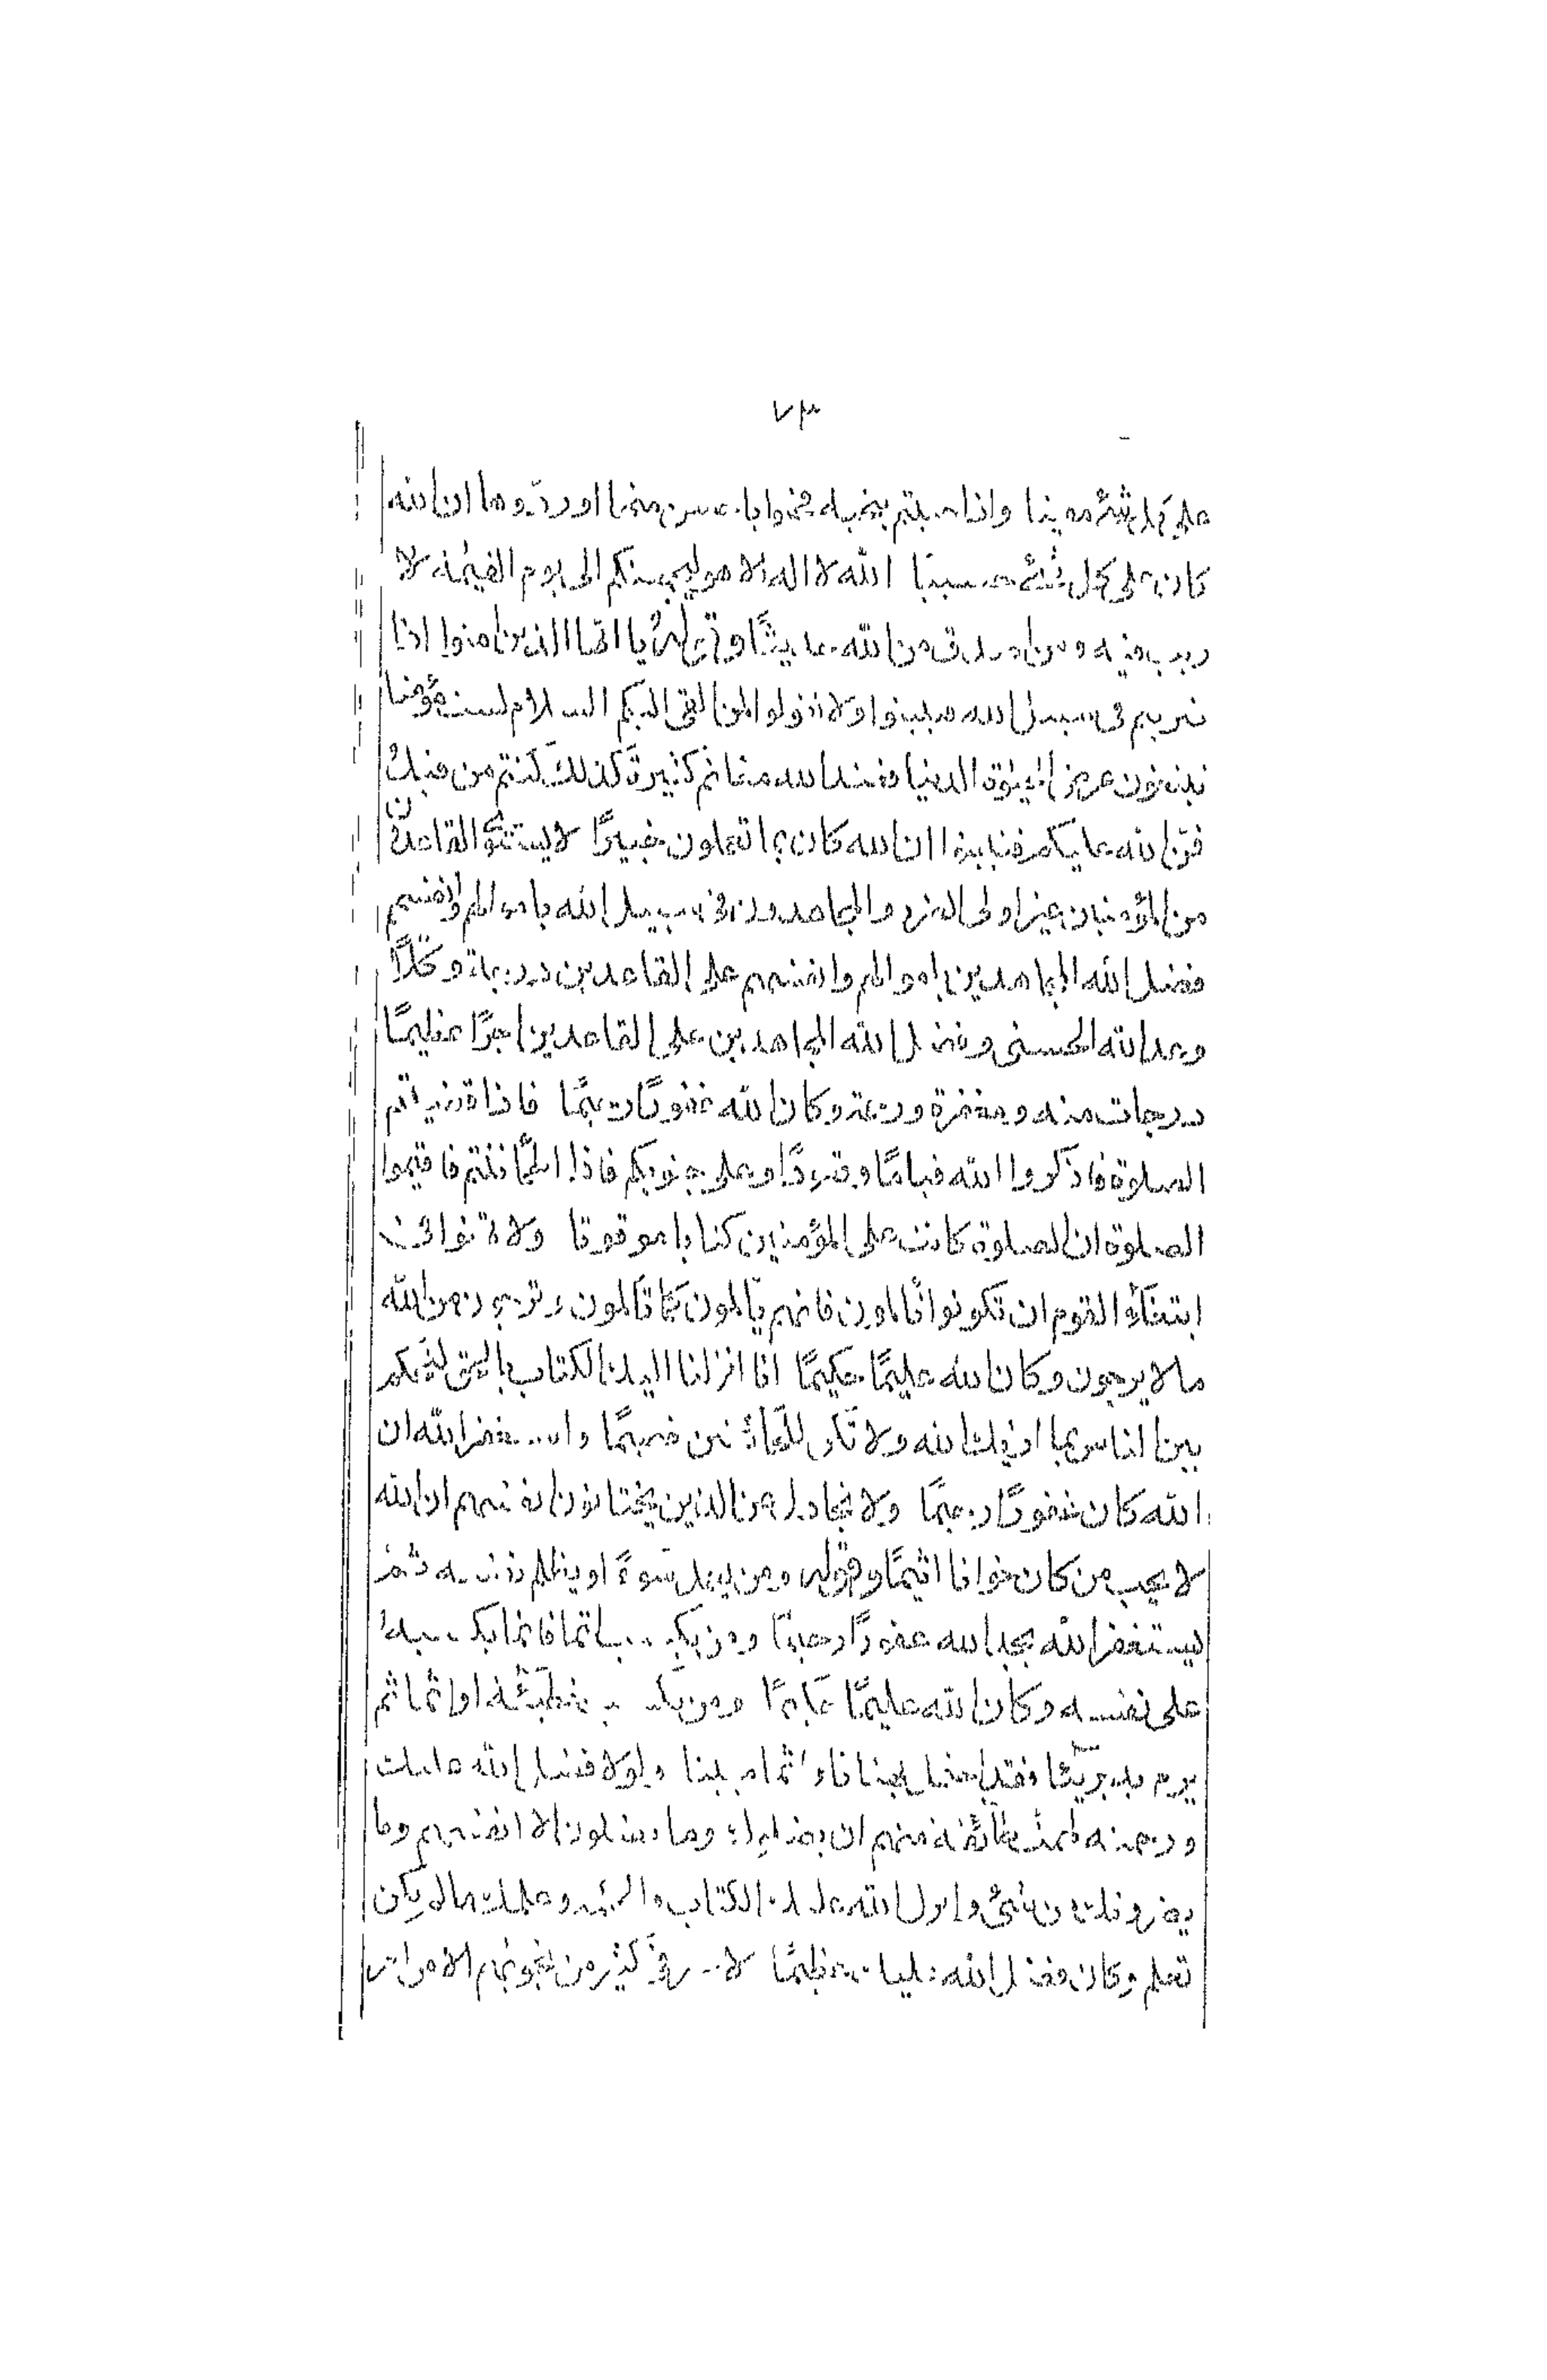 ٧٣
على كل شئ مقيتا واذا حييتم بتحية فحيوا باحسن منها او ردّوها ان الله
كان على كل شئ حسيبًا الله لا اله الا هو ليجمعنكم الى يوم القيمة لا
ريب فيه ومن اصدق من الله حديثًا وقوله يا ايها الذين امنوا اذا
ضربتم فى سبيل الله فتبينوا ولا تقولوا لمن القى اليكم السلام لست مؤمنا
تبتغون عرض الحيوة الدنيا فعند الله مغانم كثيرة كذلك كنتم من قبل
فمنّ الله عليكم فتبينوا ان الله كان بما تعملون خبيرًا لا يستوى القاعدون
من المؤمنين غير اولى الضرر والمجاهدون فى سبيل الله باموالهم وانفسهم
فضل الله المجاهدين باموالهم وانفسهم على القاعدين درجة وكلًّا
وعد الله الحسنى وفضل الله المجاهدين على القاعدين اجرًا عظيمًا
درجات منه ومغفرة ورحمة وكان الله غفورًا رحيمًا فاذا قضيتم
الصلوة فاذكروا الله قيامًا وقعودًا وعلى جنوبكم فاذا اطمأننتم فاقيموا
الصلوة ان الصلوة كانت على المؤمنين كتابا موقوتا ولا تهنوا فى
ابتغآء القوم ان تكونوا تألمون فانهم يألمون كما تألمون وترجون من الله
ما لا يرجون وكان الله عليمًا حكيمًا انا انزلنا اليك الكتاب بالحق لتحكم
بين الناس بما اريك الله ولا تكن للخائنين خصيمًا واستغفر الله ان
الله كان غفورًا رحيمًا ولا تجادل عن الذين يختانون انفسهم ان الله
لا يحب من كان خوانا اثيمًا وقوله ومن يعمل سوءً او يظلم نفسه ثم
يستغفر الله يجد الله غفورًا رحيمًا ومن يكسب اثما فانما يكسبه
على نفسه وكان الله عليمًا حكيمًا ومن يكسب خطيئة او اثما ثم
يرم به بريئا فقد احتمل بهتانا واثما مبينا ولولا فضل الله عليك
ورحمته لهمت طائفة منهم ان يضلوك وما يضلون الا انفسهم وما
يضرونك من شئ وانزل الله عليك الكتاب والحكمة وعلمك ما لم تكن
تعلم وكان فضل الله عليك عظيمًا لا خير فى كثير من نجويهم الا من امر